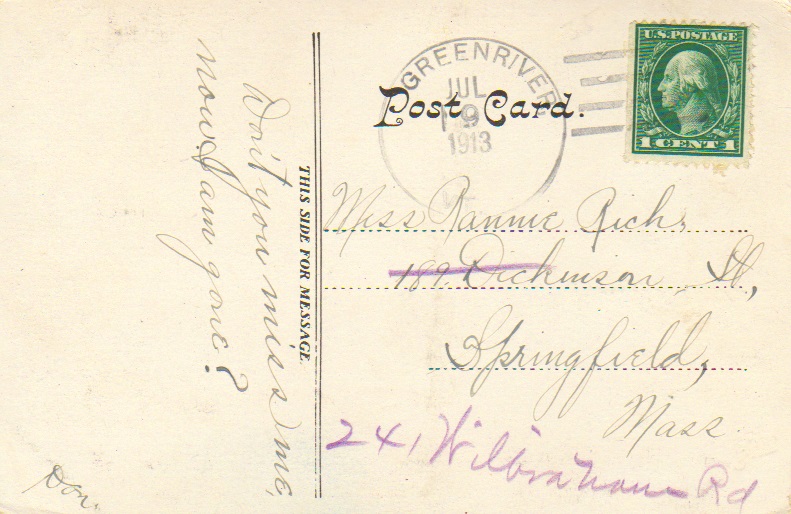 Don't you miss me,
now I am gone?
Don.
THIS SIDE FOR MESSAGE.
Post Card.
GREENRIVER
JUL
9
1913
U.S. POSTAGE
1 CENT 1
Miss Fannie Rich,
189 Dickinson St,
Springfield,
Mass
241 Wilbraham Rd